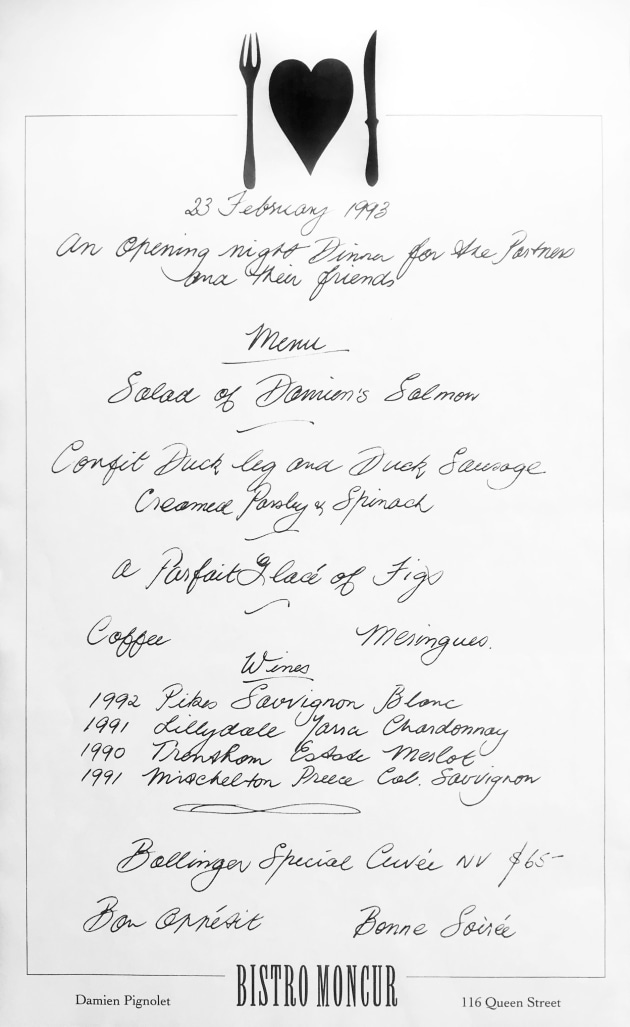 23 February 1993
An Opening night Dinner for the Partners
and their friends
Menu
Salad of Damien's Salmon
Confit Duck leg and Duck Sausage
Creamed Parsley & Spinach
a Parfait Glacé of Figs
Coffee Meringues.
Wines
1992 Pikes Sauvignon Blanc
1991 Lillydale Yarra Chardonnay
1990 Trentham Estate Merlot
1991 Mitchelton Preece Cab. Sauvignon
Bollinger Special Cuvée NV $65-
Bon Appétit Bonne Soirée
Damien Pignolet BISTRO MONCUR 116 Queen Street